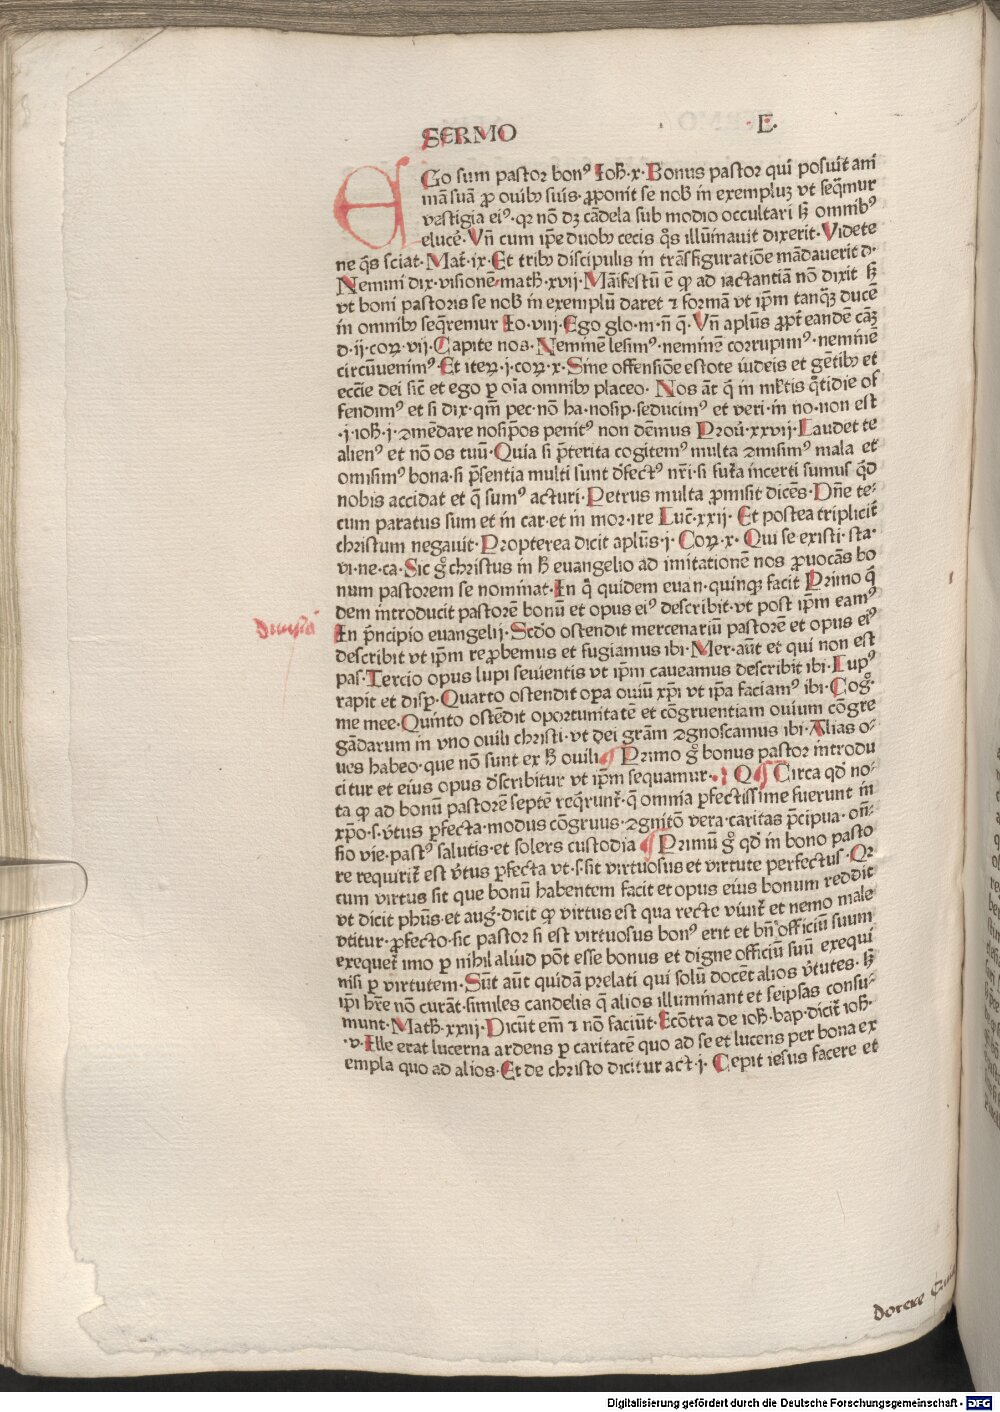 SERMO E.
EGo sum pastor bonꝰ Ioh̄·x·Bonus pastor qui posuit ani
mā suā ꝓ ouibꝫ suis·ꝓponit se nob̄ in exempluꝫ vt seq̄mur
vestigia eiꝰ·qꝛ nō dꝫ cādela sub modio occultari sꝫ omnibꝰ
elucē·Vn̄ cum ip̄e duobꝫ cecis q̄s illūinauit dixerit·Videte
ne q̄s sciat·Mat̄·ix·Et tribꝫ discipulis in trāsfiguratiōe mādauerit d·
Nemini dix·visionē·math̄·xvij·Māifestū ē ꝙ ad iactantiā nō dixit sꝫ
vt boni pastoris se nob̄ in exemplū daret ⁊ formā vt ip̄m tanqꝫ ducē
in omnibꝫ seq̄remur Io·viij·Ego glo·m·n̄ q̄·Vn̄ aplūs ꝓpt̄ eandē cāꝫ
d·ij·coꝝ·vij·Capite nos·Neminē lesimꝰ·neminē corrupimꝰ·neminē
circūuenimꝰ·Et iteꝝ·j·coꝝ·x·Sine offensiōe estote iudeis et gētibꝫ et
ecc̄ie dei sic̄ et ego ꝑ oīa omnibꝫ placeo·Nos āt q̄ in ml̄tis q̄tidie of
fendimꝰ et si dix·qm̄ pec·nō ha·nosip·seducimꝰ et veri·in no·non est
·j·ioh̄·j·⁊mēdare nosip̄os penitꝰ non dēmus Prou̇·xxvij·Laudet te
alienꝰ et nō os tuū·Quia si p̄terita cogitemꝰ multa ⁊misimꝰ mala et
omisimꝰ bona·si p̄sentia multi sunt d̄fectꝰ nr̄i·si fut̄a incerti sumus qd̄
nobis accidat et q̄ sumꝰ acturi·Petrus multa ꝓmisit dicēs·Dn̄e te⸗
cum paratus sum et in car·et in mor·ire Luc̄·xxij·Et postea triplicit̄
christum negauit·Propterea dicit aplūs·j·Coꝝ·x·Qui se existi·sta·
vi·ne·ca·Sic g̊ christus in h̄ euangelio ad imitationē nos ꝓuocās bo
num pastorem se nominat·In q̄ quidem euan·quinqꝫ facit Primo q̄
dem introducit pastorē bonū et opus eiꝰ describit·vt post ip̄m eamꝰ
diuisio
In p̄ncipio euangelij·Scd̄o ostendit mercenariū pastorē et opus eiꝰ
describit vt ip̄m reꝓbemus et fugiamus ibi·Mer·aūt et qui non est
pas·Tercio opus lupi seuientis vt ip̄m caueamus describit ibi·Lupꝰ
rapit et disp̄·Quarto ostendit oꝑa ouiū xp̄i vt ip̄a faciamꝰ ibi·Cog̊·
me mee·Quinto ostēdit oportunitatē et cōgruentiam ouium cōgre
gādarum in vno ouili christi·vt dei grām ⁊gnoscamus ibi·Alias o⸗
ues habeo·que nō sunt ex h̄ ouili ¶ Primo g̊ bonus pastor introdu
citur et eius opus d̄scribitur vt ip̄m sequamur· Q ¶ Circa qd̄ no⸗
ta ꝙ ad bonū pastorē septē req̄runt̄·q̄ omnia ꝑfectissime fuerunt in
xp̄o·s·v̄tus ꝑfecta·modus cōgruus·⁊gnitō vera·caritas p̄cipua·on̄⸗
sio vie·pastꝰ salutis·et solers custodia ¶ Primū g̊ qd̄ in bono pasto
re requirit̄ est v̄tus ꝑfecta vt·s·sit virtuosus et virtute perfectus·Qꝛ
cum virtus sit que bonū habentem facit et opus eius bonum reddit
vt dicit phūs·et aug̊·dicit ꝙ virtus est qua recte viuit̄ et nemo male
vtitur·ꝓfecto·sic pastor si est virtuosus bonꝰ erit et bn̄ officiū suum
exequet̄ imo ꝑ nihil aliud pōt esse bonus et digne officiū suū exequi
nisi ꝑ virtutem·Sūt aūt quidā prelati qui solū docēt alios v̄tutes·sꝫ
ip̄i hr̄e nō curāt·similes candelis q̄ alios illuminant et seipsas consu⸗
munt·Math̄·xxiij·Dicūt em̄ ⁊ nō faciūt·Ecōtra de ioh̄·bap·dicit̄ ioh̄·
·v·Ille erat lucerna ardens ꝑ caritatē quo ad se et lucens per bona ex
empla quo ad alios·Et de christo dicitur act·j·Cepit iesus facere et
docere
Digitalisierung gefördert durch die Deutsche Forschungsgemeinschaft - DFG